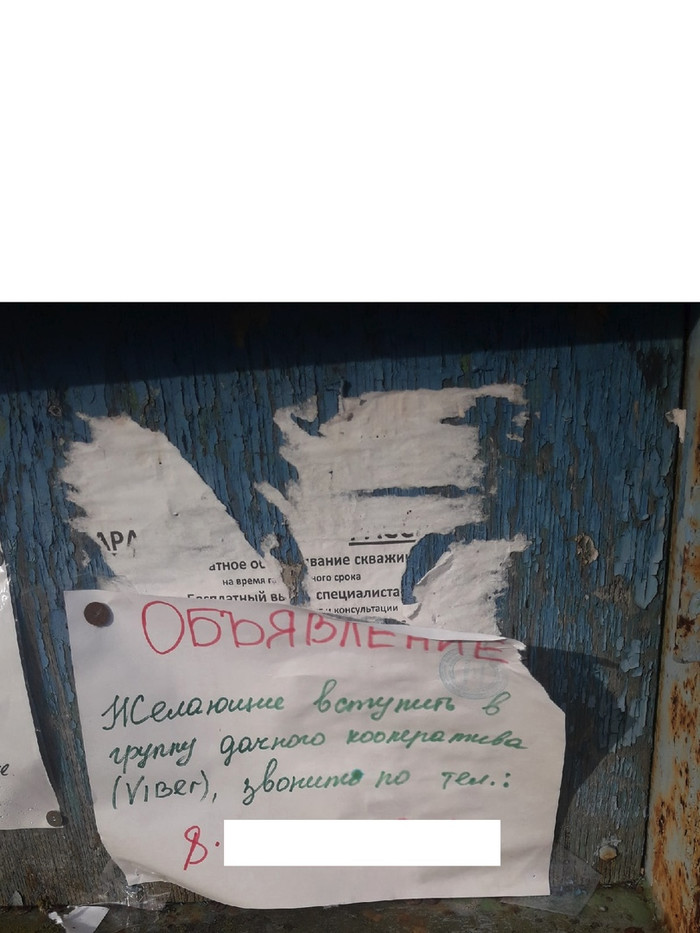 атное об вание скважин
на время г ного срока
Бесплатный вы специалиста
и консультации
ОБЪЯВЛЕНИЕ
Желающие вступить в
группу дачного кооператива
(VIBER), звонить по тел.:
8.